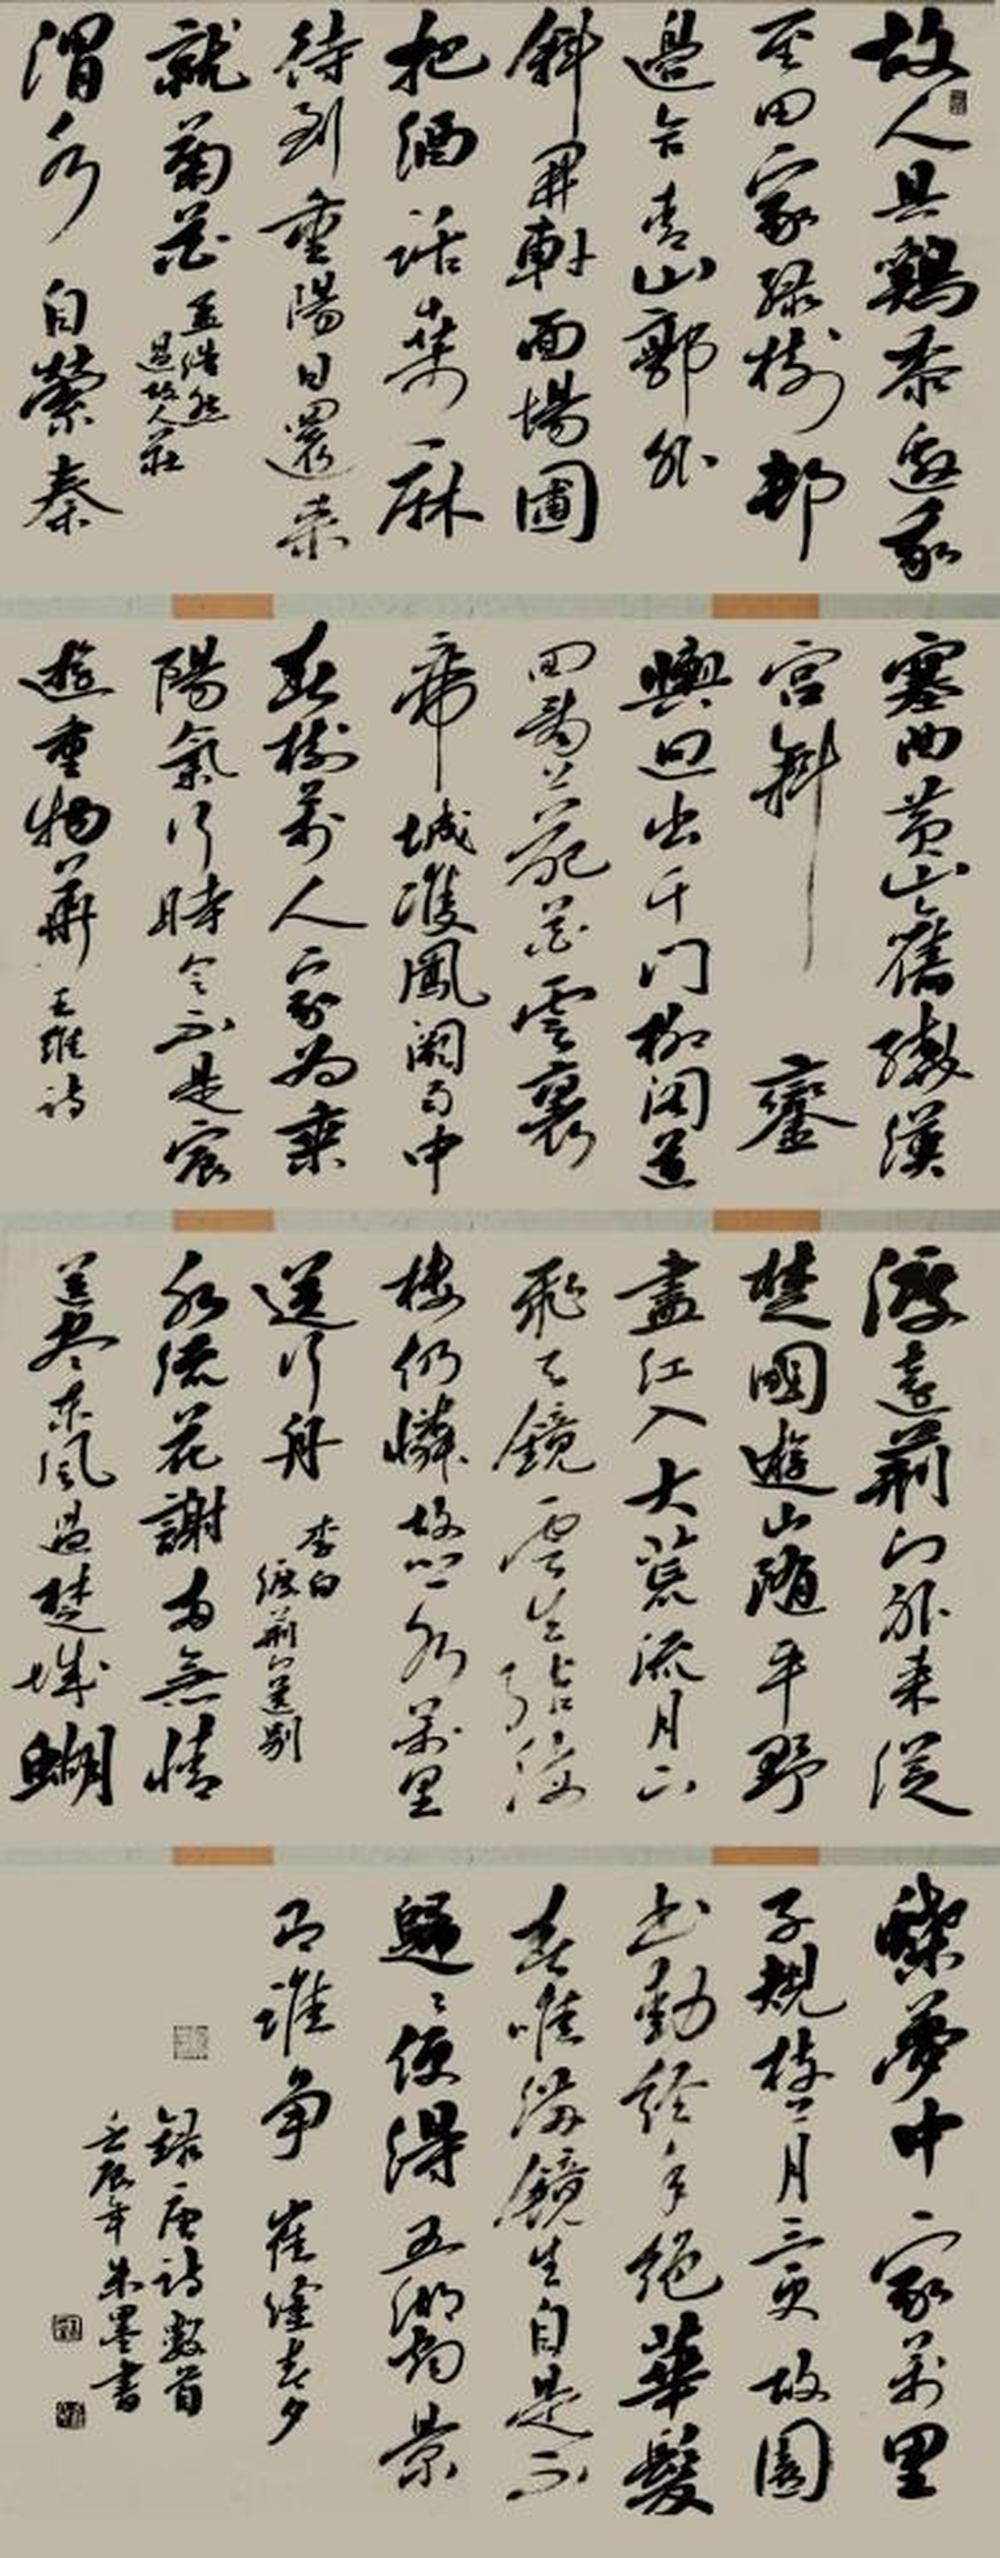 故人具鷄黍邀我
至田家綠樹邨
邊合青山郭外
斜開軒面場圃
把酒話桑麻
待到重陽日還来
就菊花
孟浩然
過故人莊
渭水自縈秦
塞曲黄山舊繞漢
宫斜鑾
輿迥出千门柳閣道
回看上苑花雲裏
帝城雙鳳闕雨中
春樹萬人家為乘
陽氣行時令不是宸
遊重物華
王維詩
渡遠荆门外来從
楚國遊山随平野
盡江入大荒流月下
飛天鏡雲生結海
樓仍憐故鄉水萬里
送行舟
李白
渡荆门送别
水流花謝両無情
送尽東風過楚城蝴
蝶夢中家萬里
子規枝上月三更故園
书動經年絶華髮
春唯滿鏡生自是不
歸〻便得五湖煙景
有誰争
崔塗春夕
錄唐詩數首
壬辰年朱墨書